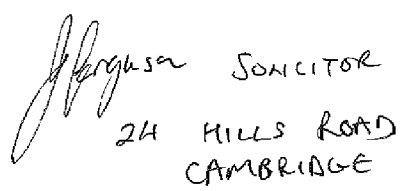 J Ferguson SOLICITOR
24 HILLS ROAD
CAMBRIDGE